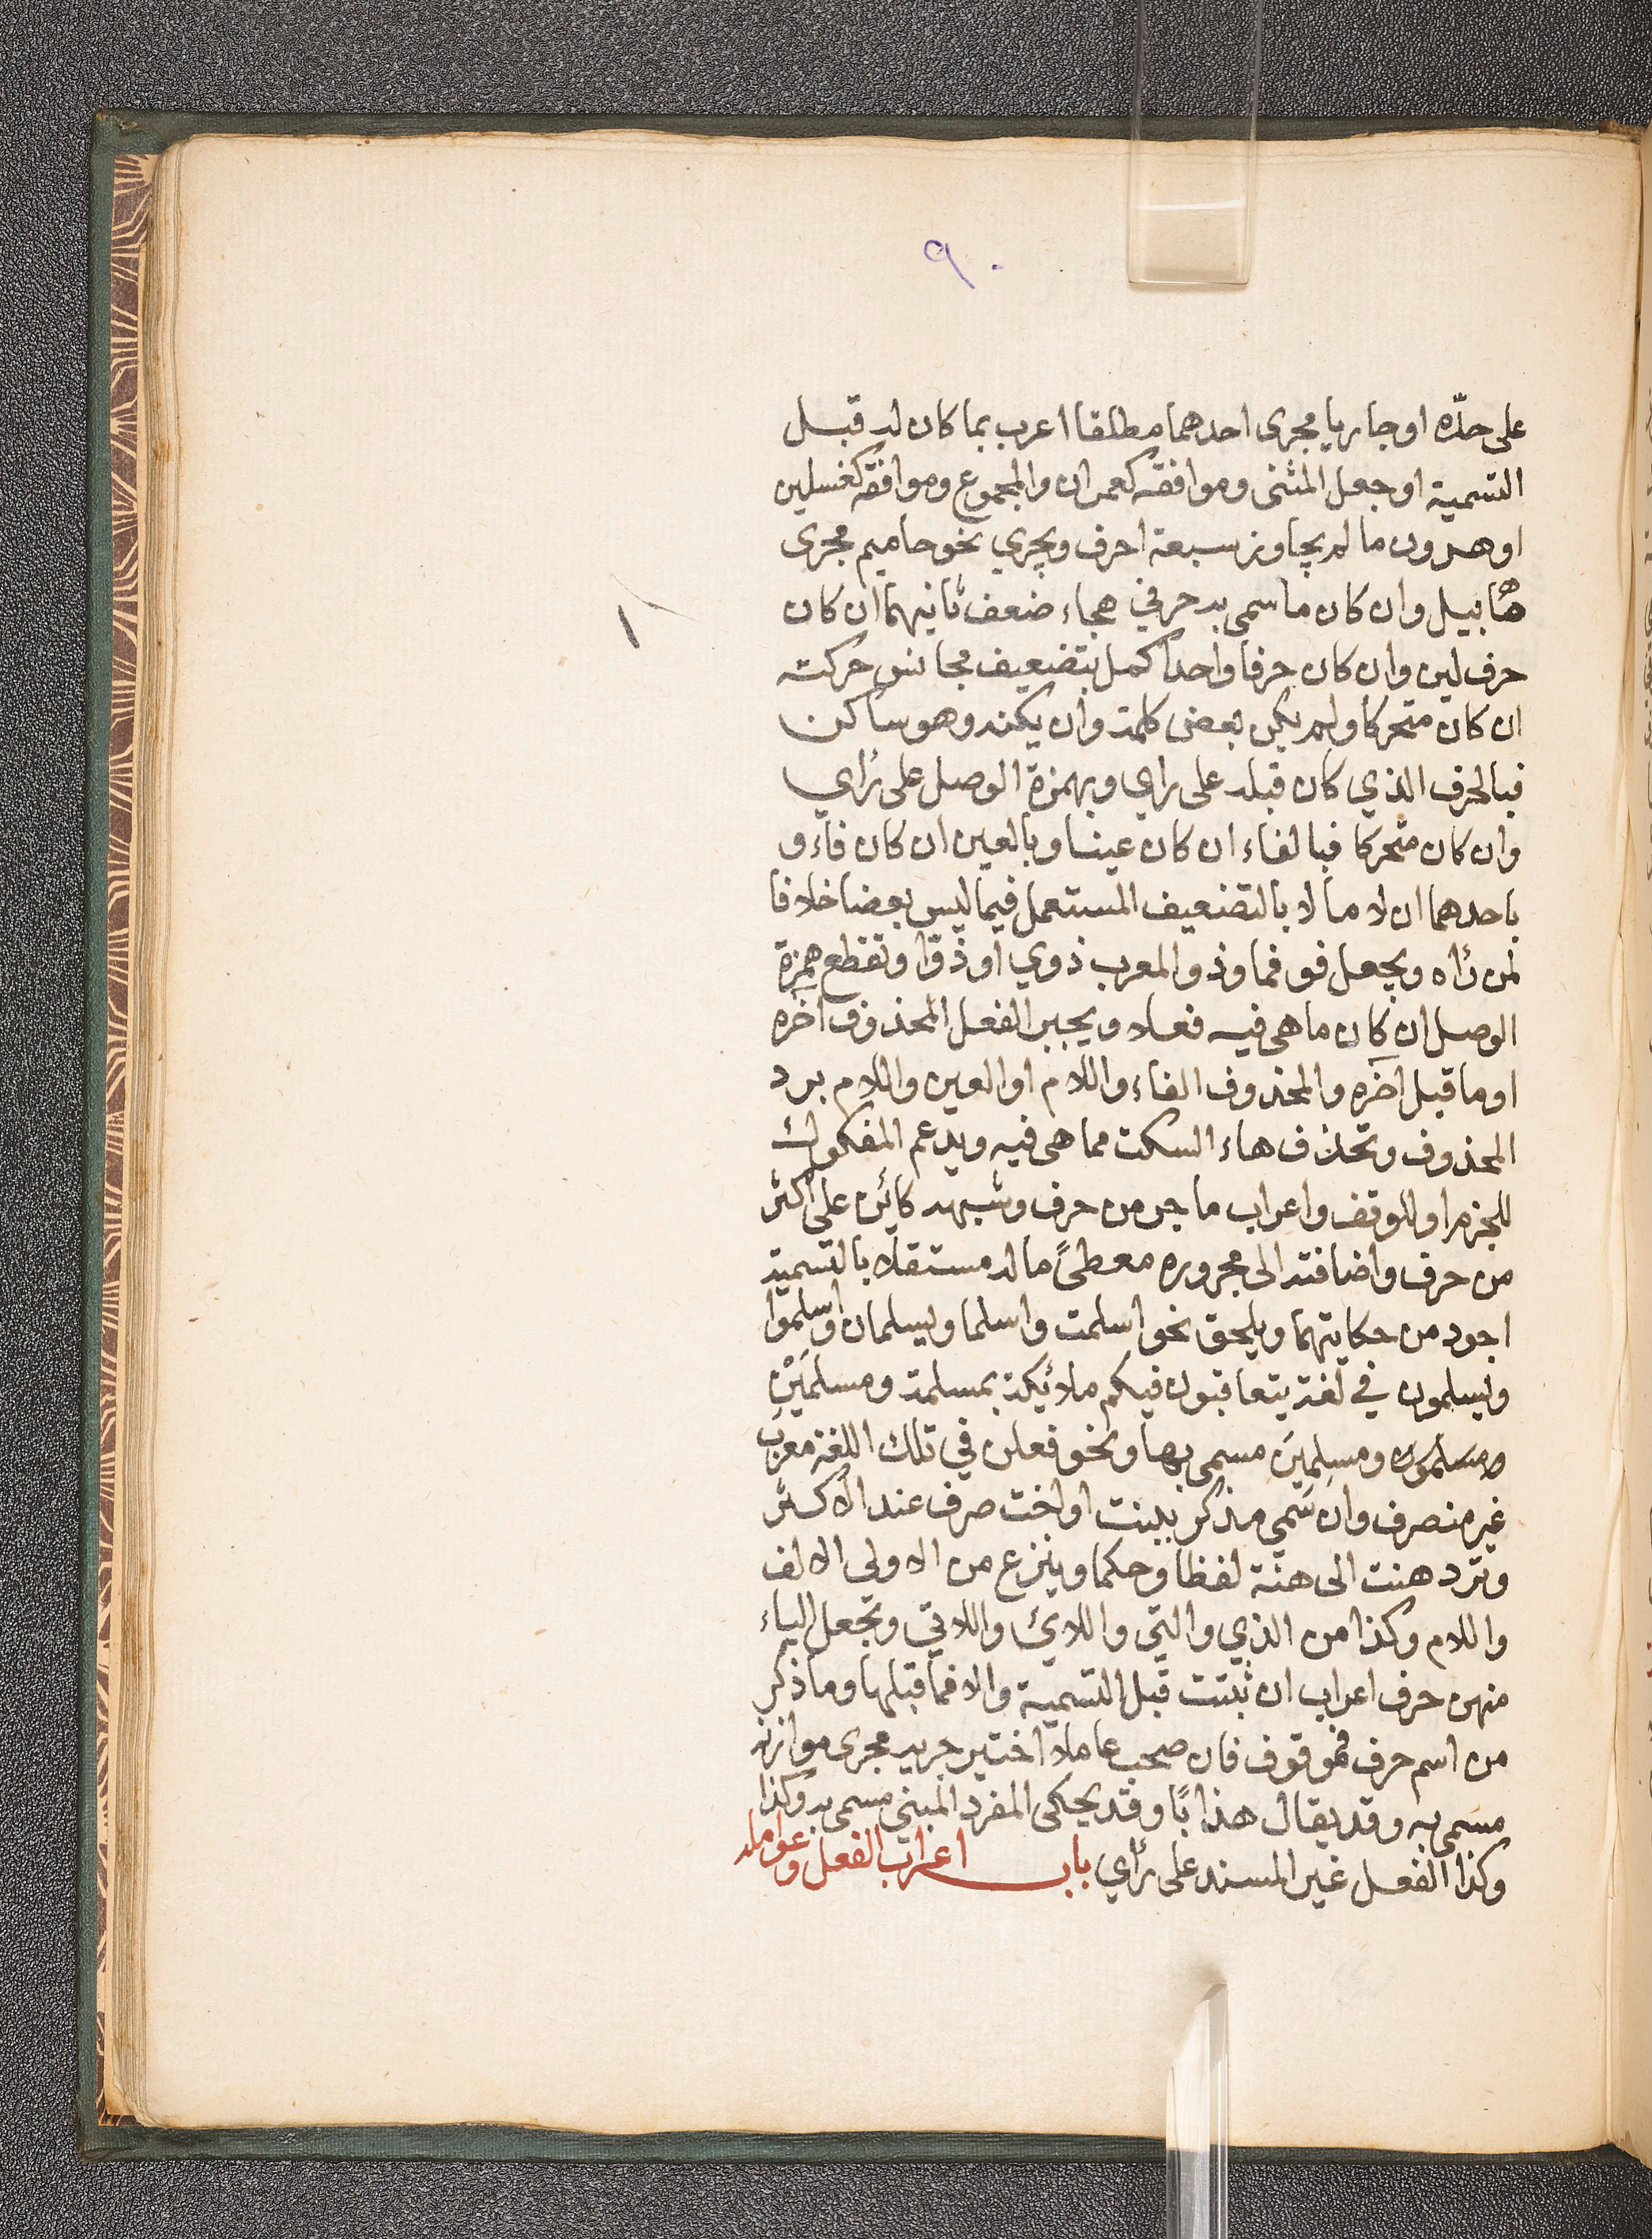 ٩٠
على حدّه او جاريا مجرى احدهما مطلقا اعرب بما كان له قبل
التسمية او جعل المثنى وموافقه كعمران والمجموع وموافقه كغسلين
او هرون ما لم يجاوز سبعة احرف ويجري نحو حاميم مجرى
هابيل وان كان ما سمى به حرفي هجاء ضعف ثانيهما ان كان
حرف لين وان كان حرفا واحدا كمل بتضعيف مجانس حركته
ان كان متحركا ولم يكن بعض كلمة وان يكنه وهو ساكن
فبالحرف الذي كان قبله على راي وبهمزة الوصل على رأي
وان كان متحركا فبالفاء ان كان عينا وبالعين ان كان فاء و
باحدهما ان لاما لا بالتضعيف المستعمل فيما ليس بعضا خلافا
لمن رأه ويجعل فو فما وذو المعرب ذوي او ذوًا وتقطع همزة
الوصل ان كان ما هي فيه فعلا ويجبر الفعل المحذوف آخره
او ما قبل آخره والمحذوف الفاء واللام او العين واللام برد
المحذوف وتحذف هاء السكت مما هى فيه ويدغم المفكوك
للجزم او للوقف واعراب ما جر من حرف وشبهه كائن على اكثر
من حرف واضافته الى مجروره معطىً ما له مستقلا بالتسمية
اجود من حكايتهما ويلحق نحو اسلمت واسلما ويسلمان واسلموا
ويسلمون في لغة يتعاقبون فيكم ملائكة بمسلمة ومسلمَيْن
ومسلمون ومسلمِينَ مسمى بها ونحو فعلن في تلك اللغة معرب
غير منصرف وان سمي مذكر ببنت او اخت صرف عند الاكثر
وترد هنت الى هنة لفظا وحكما وينزع من الاولى الالف
واللام وكذا من الذي والتي واللائ واللاتي وتجعل الياء
منهن حرف اعراب ان ثبتت قبل التسمية والا فما قبلها وما ذكر
من اسم حرف فموقوف فان صحب عاملا اختير جريه مجرى موازنه
مسمى به وقد يقال هذا بًا وقد يحكى المفرد المبني مسمى به وكذا
وكذا الفعل غير المسند على رأي باب اعراب الفعل وعوامله
١